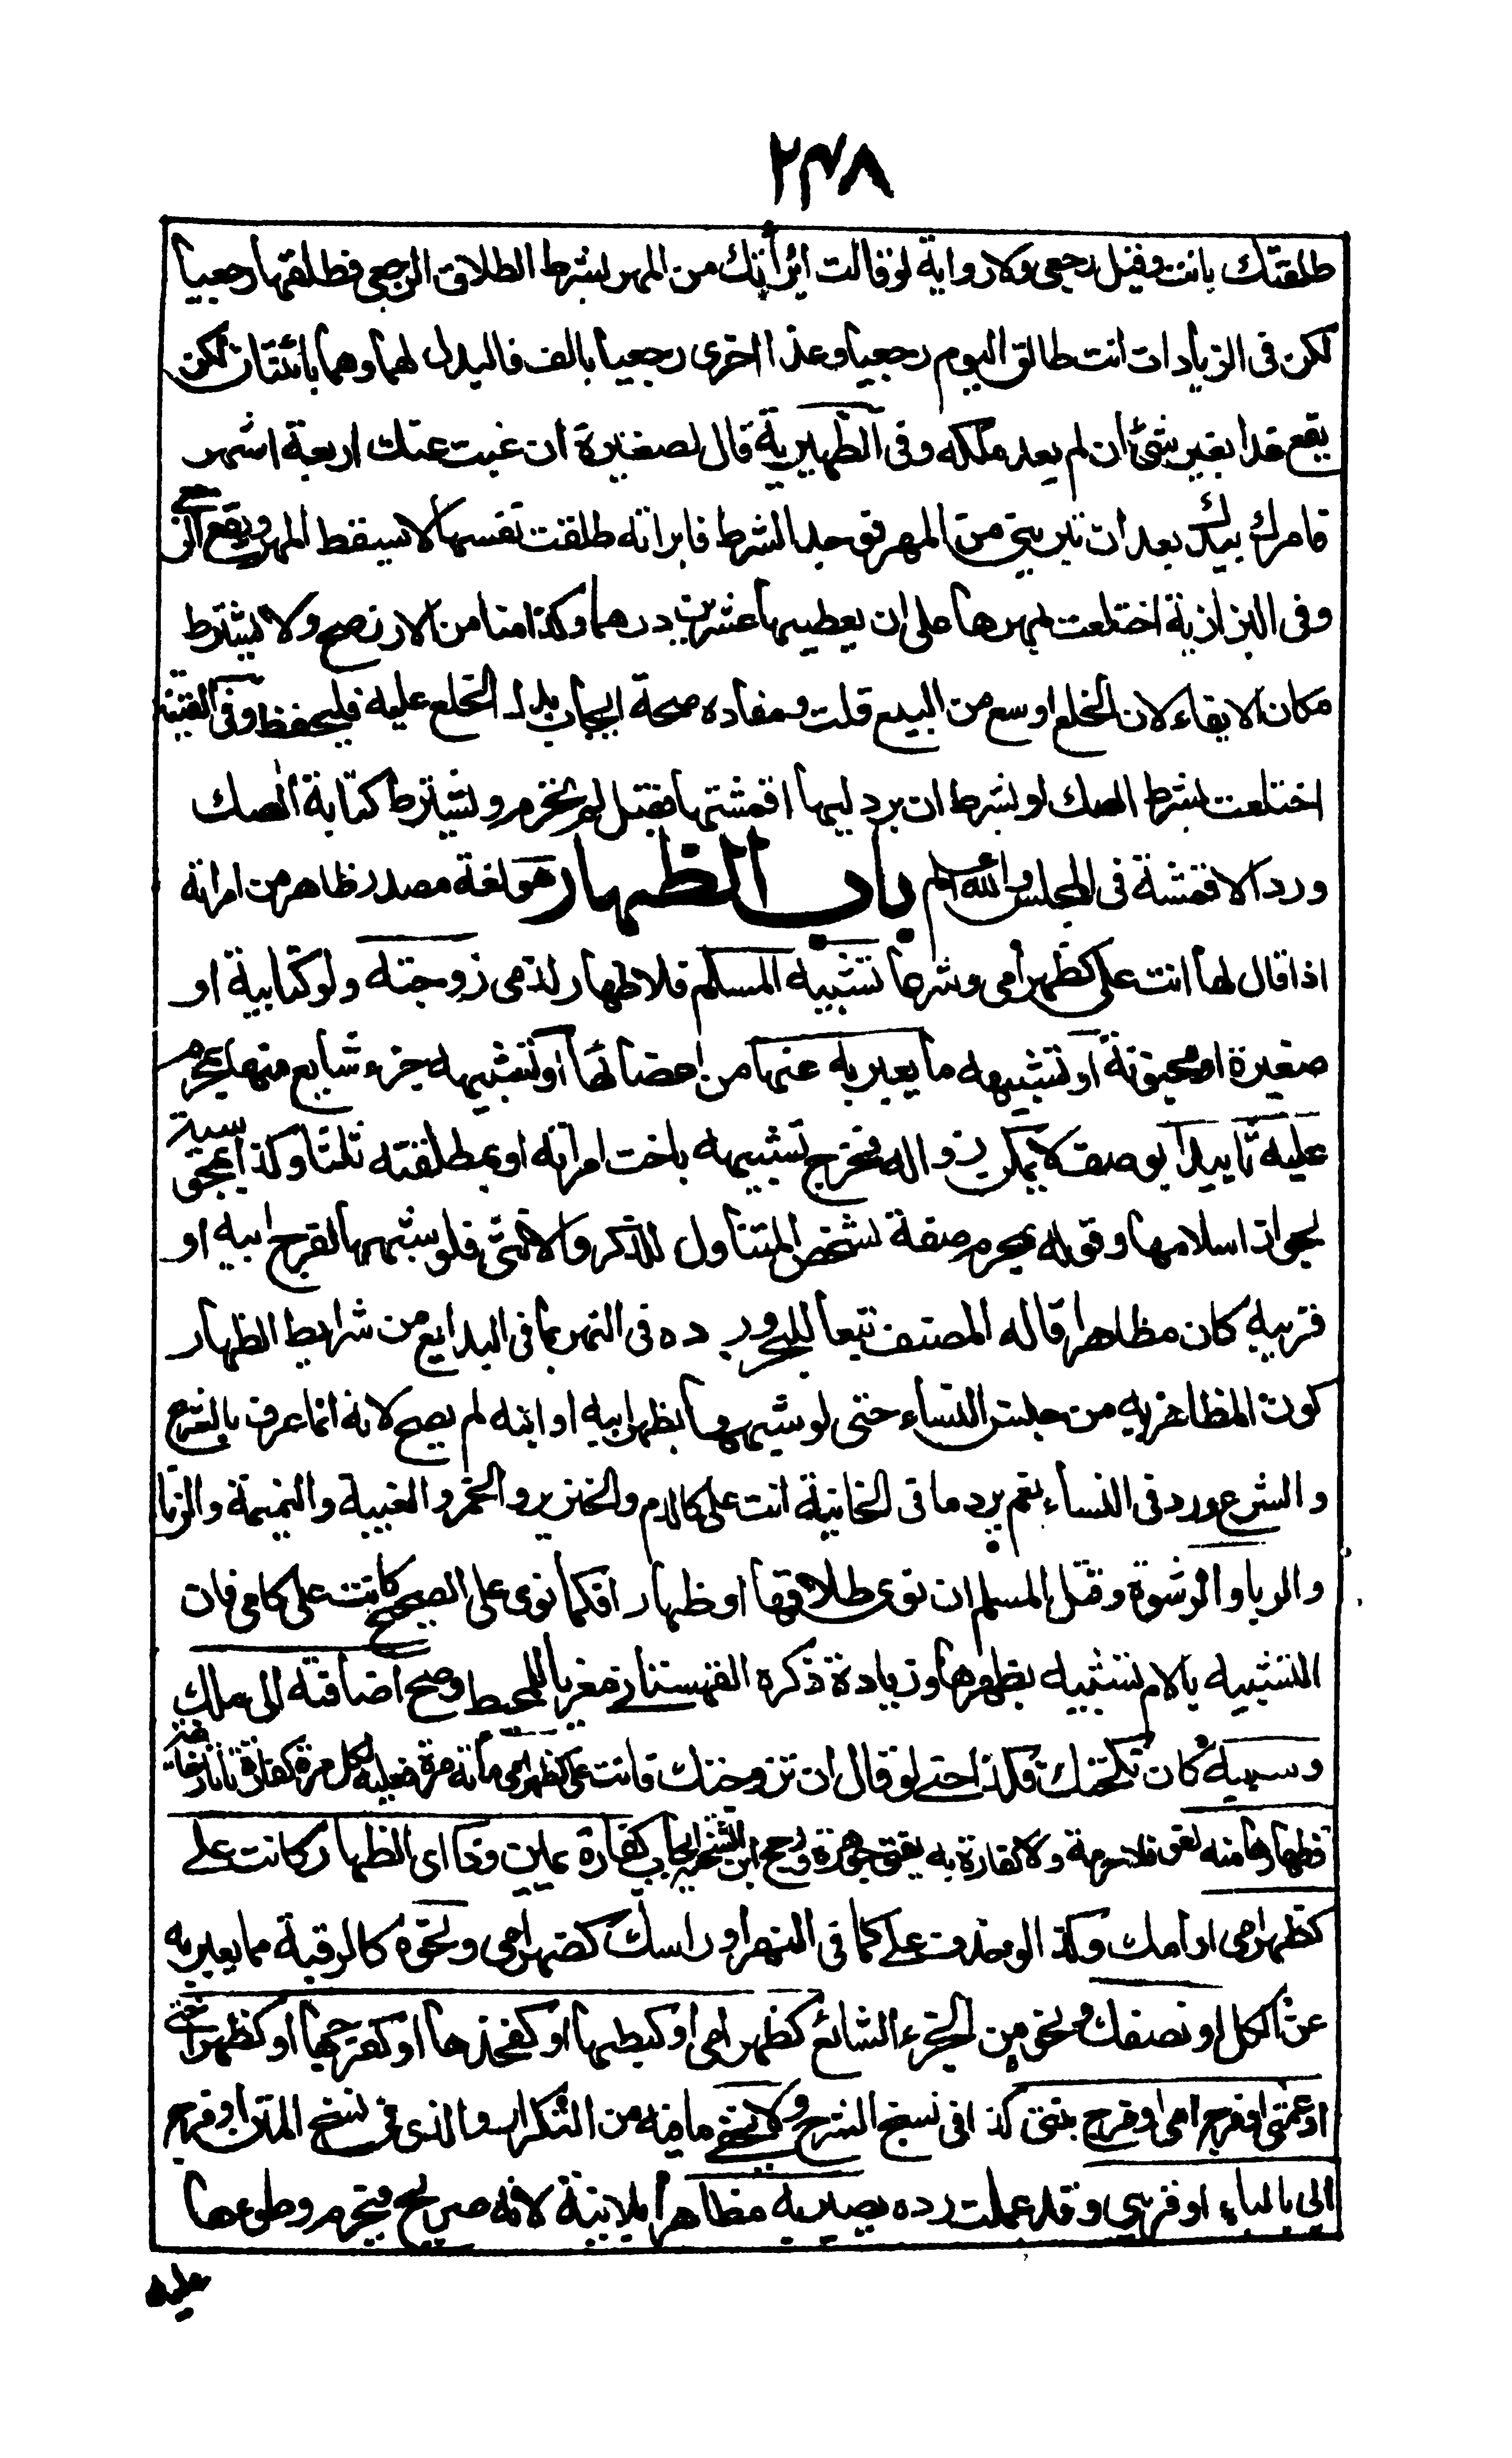 ٢٣٨
طلقتك بانت وقيل رجعى ولا رواية لو قالت ابرأتك من المهر بشرط الطلاق الرجعى فطلقها رجعيا
لكن فى الزيادات انت طالق اليوم رجعيا وغدا اخرى رجعيا بالف فالبدل لهما وهما بائنتان لكن
يقع غدا بغير شئ ان لم يعد ملكه وفى الظهيرية قال لصغيرة ان غبت عنك اربعة اشهر
فامرك بيدك بعد ان تبرينى من المهر فوجد الشرط فابراته طلقت نفسها لا يسقط المهر ويقع الرجعى
وفى البزازية اختلعت بمهرها على ان يعطيها عشرين درهما وكذا منا من الارز صح ولا يشترط
مكان الايفاء لان الخلع اوسع من البيع قلت ومفاده صحة ايجاب بدل الخلع عليه فليحفظ وفى القنية
اختلعت بشرط الصك او بشرط ان يرد ليها اقمشتها فقبل لم تحرم ويشترط كتابة الصك
ورد الاقمشة فى المجلس والله اعلم باب الظهار هو لغة مصدر ظاهر من امراته
اذا قال لها انت على كظهر امى وشرعا تشبيه المسلم فلا ظهار لذمى زوجته ولو كتابية او
صغيرة او مجنونة او تشبيهه ما يعبر به عنها من اعضائها او تشبيهه جزء شايع منها بمحرم
عليه تابيدا بوصف لا يمكن زواله فخرج تشبيهه باخت امراته او بمطلقته ثلثا وكذا بمجوسية
لجواز اسلامها وقوله بمحرم صفة لشخص المتناول للذكر والانثى فلو شبهها بفرج ابيه او
قريبه كان مظاهرا قاله المصنف تبعا للبحر ورده فى النهر بما فى البدايع من شرايط الظهار
كون المظاهر به من جنس النساء حتى لو شبهها بظهر ابيه او ابنه لم يصح لانه انما عرف بالشرع
والشرع ورد فى النساء نعم يرد ما فى الخانية انت على كالدم والخنزير والخمر والغيبة والنميمة والزنا
والربا والرشوة وقتل المسلم ان نوى طلاقها او ظهارا فكما نوى على الصحيح كانت على كامى فان
التشبيه بالام تشبيه بظهرها وزيادة ذكره القهستانى مغريا للمحيط وصح اضافته الى ملك
وسببه كان نكحتك فكذا حتى لو قال ان تزوجتك فانت على كظهر امى مائة مرة فعليه لكل مرة كفارة تاتارخانية
فظهارها منه لغو فلا حرمة ولا كفارة به يفتى جوهرة ورجح ابن الشحنة ايجاب كفارة يمين وذا اى الظهار كانت على
كظهر امى او امك وكذا لو حذف على كما فى النهر او راسك كضهر امى ونحوه كالرقبة مما يعبر به
عن الكل او نصفك ونحوه من الجزء الشائع كظهر امى او كبطنها او كفخذها او كفرجها او كظهر اختى
او عمتى او فرج امى او فرج بنتى كذا فى نسخ الشرح ولا يخفى ما فيه من التكرار والذى فى نسخ المتن او فرج
ابى بالباء او قريبى وقد علمت رده يصير به مظاهرا بلا نية لانه صريح فيحرم وطوءها
عليه